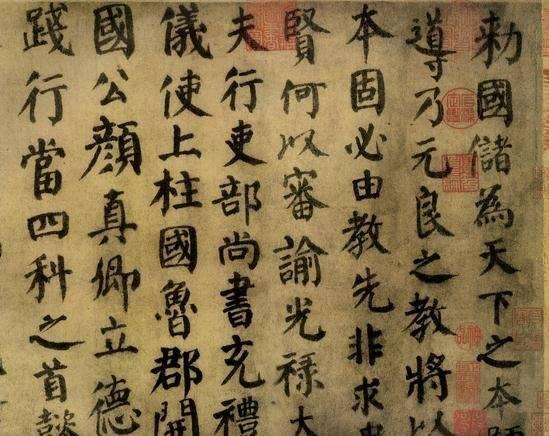 勅國儲為天下之本師
導乃元良之教將以
本固必由教先非求忠
賢何以審諭光祿大
夫行吏部尚書充禮
儀使上柱國魯郡開
國公顏真卿立德
踐行當四科之首懿